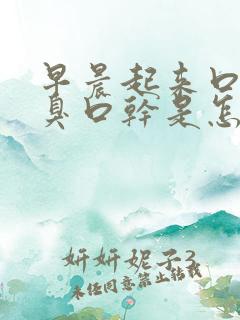 早晨起来口
臭口幹是怎
妍妍妮子3
未经同意禁止转载